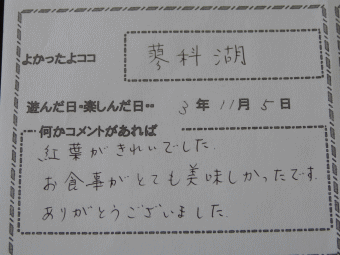 よかったよココ 蓼科湖
遊んだ日・楽しんだ日・・ 3年11月5日
何かコメントがあれば
紅葉がきれいでした.
お食事がとても美味しかったです.
ありがとうございました.